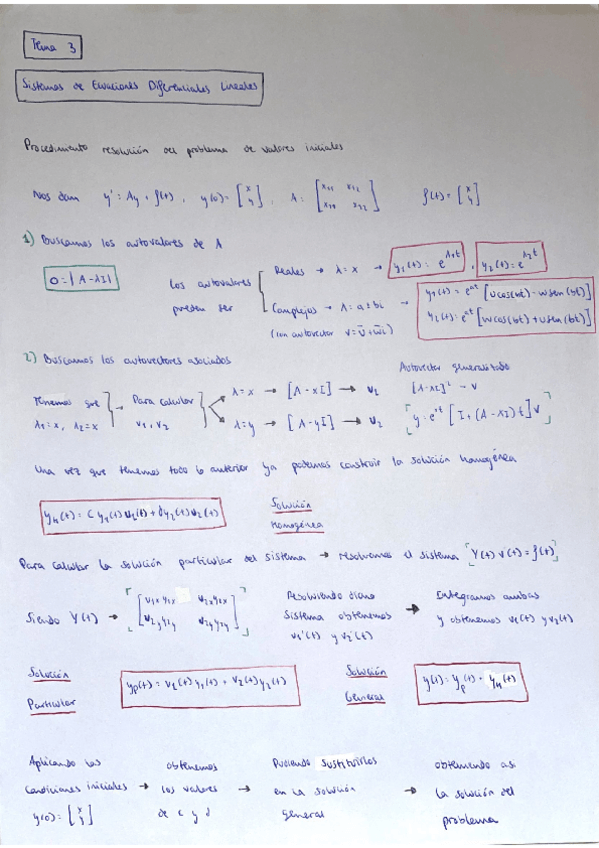 Tema 3
Sistemas de Ecuaciones Diferenciales Lineales
Procedimiento resolución del problema de valores iniciales
Nos dan y' = Ay + f(t) , y(0) = [x y] , A = [x₁₁ x₁₂ x₁₁ x₂₂] f(t) = [x y]
1) Buscamos los autovalores de A
0 = |A - λI|
Los autovalores pueden ser
Reales → λ = x → y₁(t) = e^λ₁t , y₂(t) = e^λ₂t
Complejos → λ = a ± bi → y₁(t) = e^at [u cos(bt) - w sen(bt)]
(con autovector v = ū + w̄i) y₂(t) = e^at [w cos(bt) + u sen(bt)]
2) Buscamos los autovectores asociados
Autovector generalizado
[A - λI]² → v
y = e^λt [I + (A - λI) t] v
Tenemos que λ₁ = x, λ₂ = x → Para calcular v₁, v₂
λ = x → [A - xI] → v₁
λ = y → [A - yI] → v₂
Una vez que tenemos todo lo anterior ya podemos construir la solución homogénea
y_H(t) = C y₁(t) v₁(t) + d y₂(t) v₂(t)
Solución Homogénea
Para calcular la solución particular del sistema → resolvemos el sistema Y(t) v'(t) = f(t)
Siendo Y(t) →
Resolviendo dicho sistema obtenemos v₁'(t) y v₂'(t)
→ Integramos ambas y obtenemos v₁(t) y v₂(t)
Solución Particular
y_p(t) = v₁(t) y₁(t) + v₂(t) y₂(t)
Solución General
y(t) = y_p(t) + y_H(t)
Aplicando las condiciones iniciales y(0) = [x y]
→ obtenemos los valores de c y d
→ Pudiendo sustituirlos en la solución general
→ obteniendo así la solución del problema